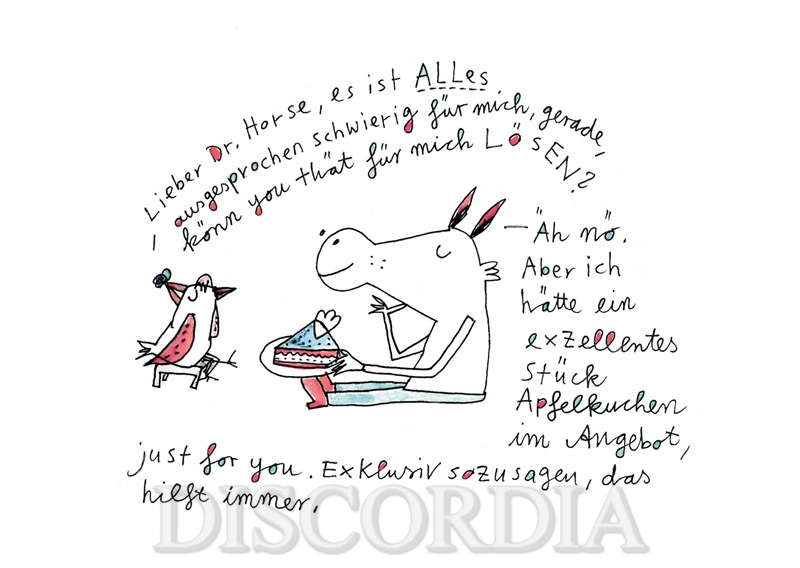 Lieber Dr. Horse, es ist ALLes
ausgesprochen schwierig für mich, gerade,
könn you thät für mich LösEN?
— Äh nö.
Aber ich
hätte ein
exzellentes
Stück
Apfelkuchen
im Angebot,
just for you. Exklusiv sozusagen, das
hilft immer.
DISCORDIA